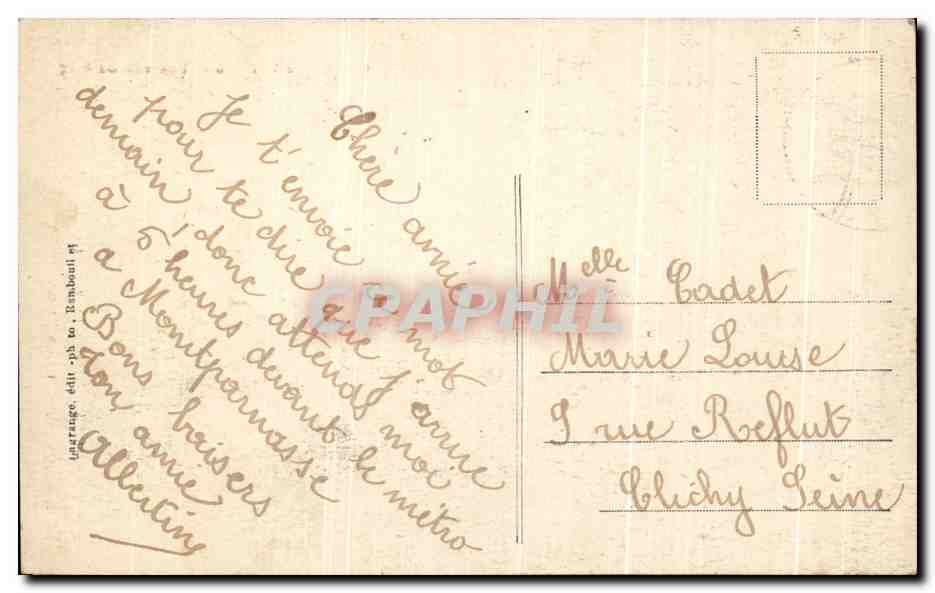 Chère amie
Je t'envoie ce mot
pour te dire que j'arrive
demain, donc attends moi
à 5 heures devant le métro
a Montparnasse
Bons baisers
ton amie
Albertine
Melle Cadet
Marie Louise
9 rue Reflut
Clichy Seine
Lagrange, édit -ph to, Rambouil et
CPAPHIL